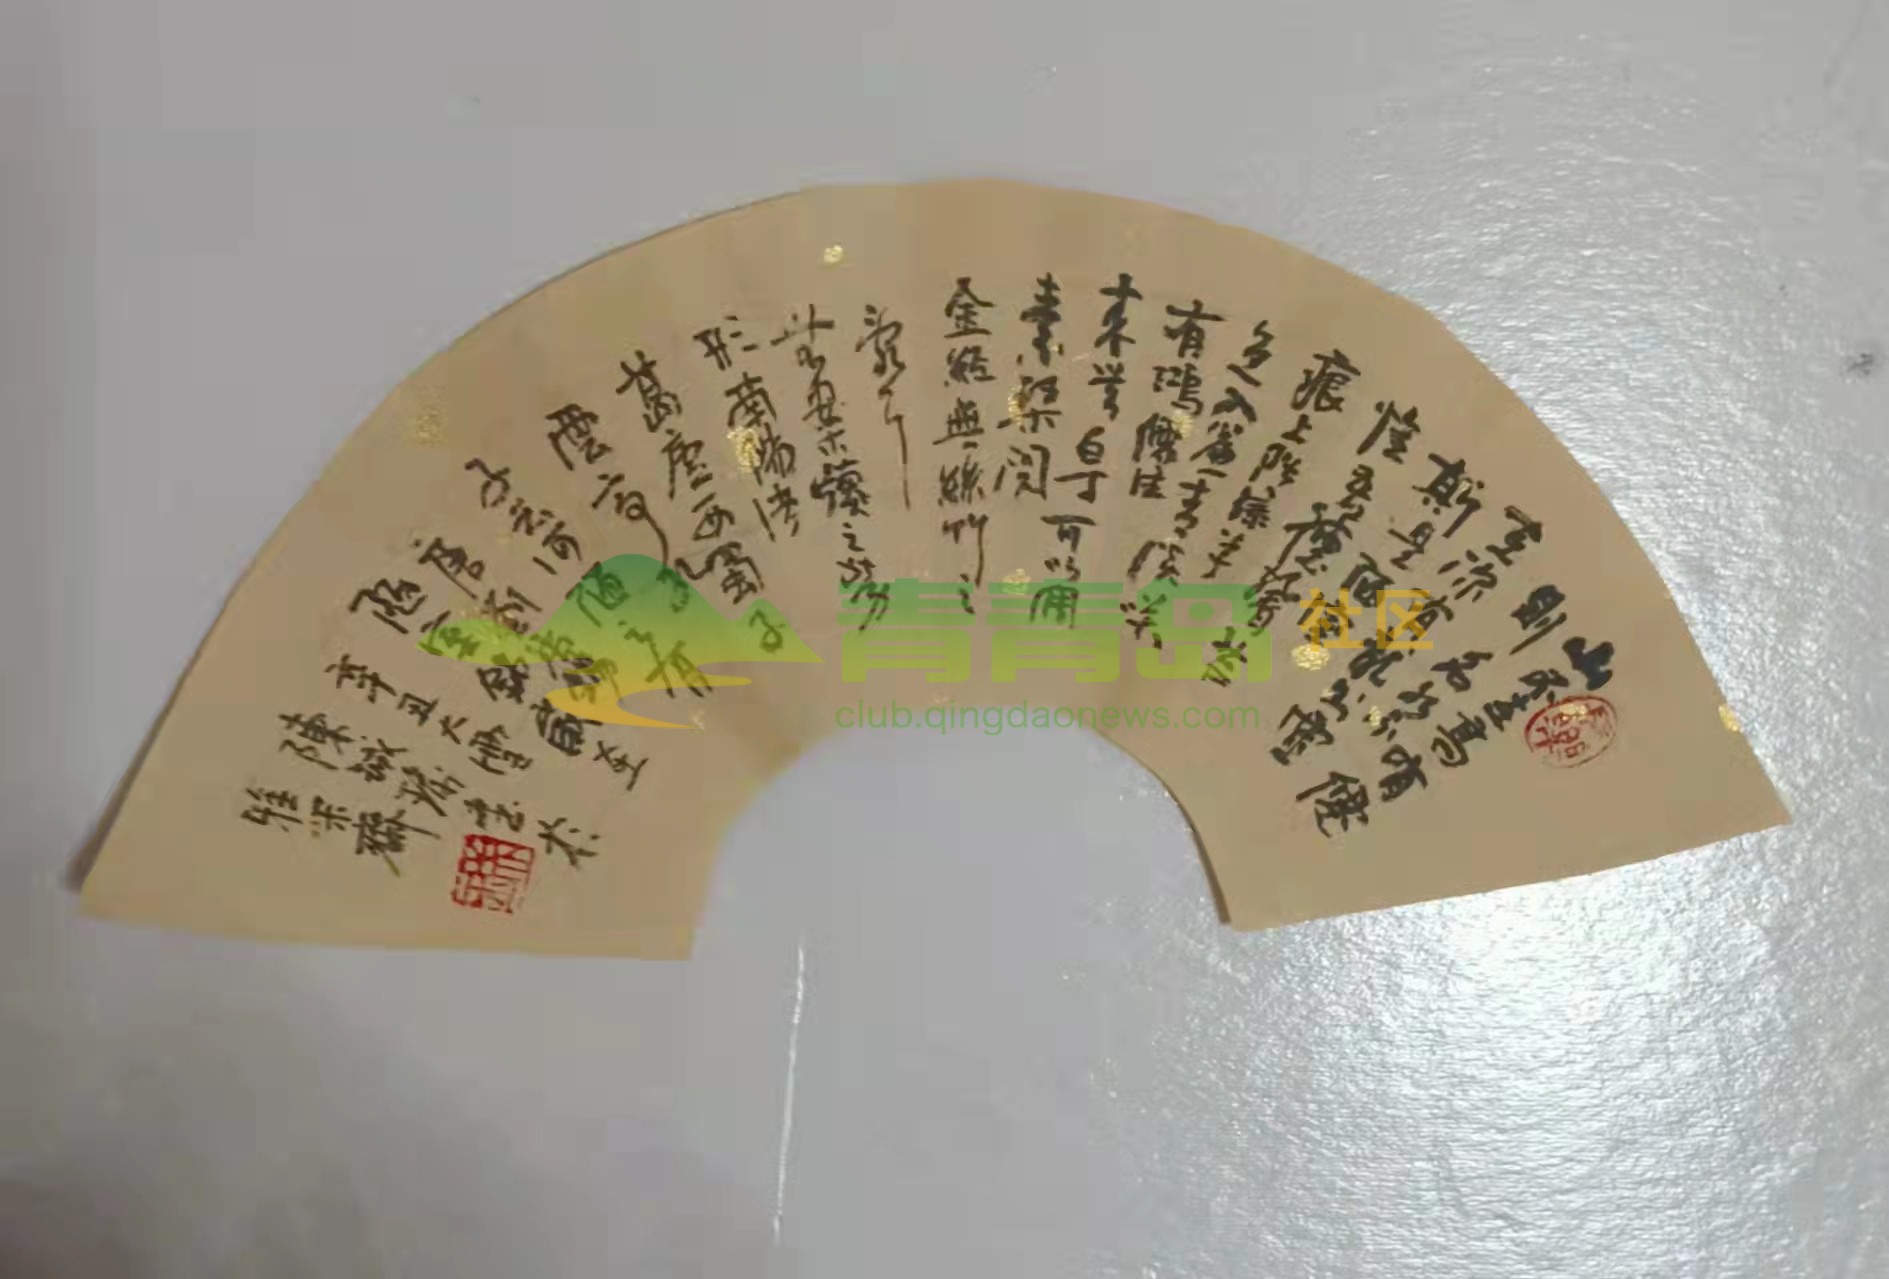 山不在高有僊
則名水不
在深有
斯是陋室
惟吾德馨
痕上階綠草
色入簾青
有鴻儒往
來 白丁可以調
素琴閱
金經無絲竹之
亂耳
案牘之勞
形南陽諸
葛廬西蜀子
雲亭
子云何陋之有
唐劉禹錫
陋室銘
辛丑大雪
陳 書於
雅 齋
青青岛社区
club.qingdaonews.com